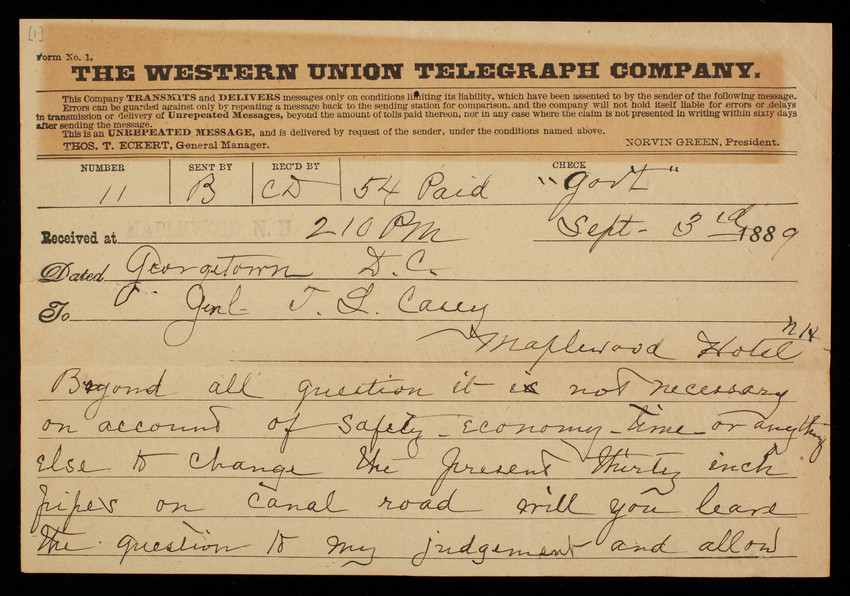 [1]
Form No. 1.
THE WESTERN UNION TELEGRAPH COMPANY.
This Company TRANSMITS and DELIVERS messages only on conditions limiting its liability, which have been assented to by the sender of the following message.
Errors can be guarded against only by repeating a message back to the sending station for comparison, and the company will not hold itself liable for errors or delays
in transmission or delivery of Unrepeated Messages, beyond the amount of tolls paid thereon, nor in any case where the claim is not presented in writing within sixty days
after sending the message.
This is an UNREPEATED MESSAGE, and is delivered by request of the sender, under the conditions named above.
THOS. T. ECKERT, General Manager. NORVIN GREEN, President.
NUMBER SENT BY REC'D BY CHECK
11 B CD 54 Paid "Govt"
MAPLEWOOD N. H.
Received at 210 PM Sept - 3rd 1889
Dated Georgetown D.C.
To Genl T. L. Casey
Maplewood Hotel NH
Beyond all question it is not necessary
on account of safety - economy - time - or anything
else to change the present thirty inch
pipes on canal road will you leave
the question to my judgement and allow